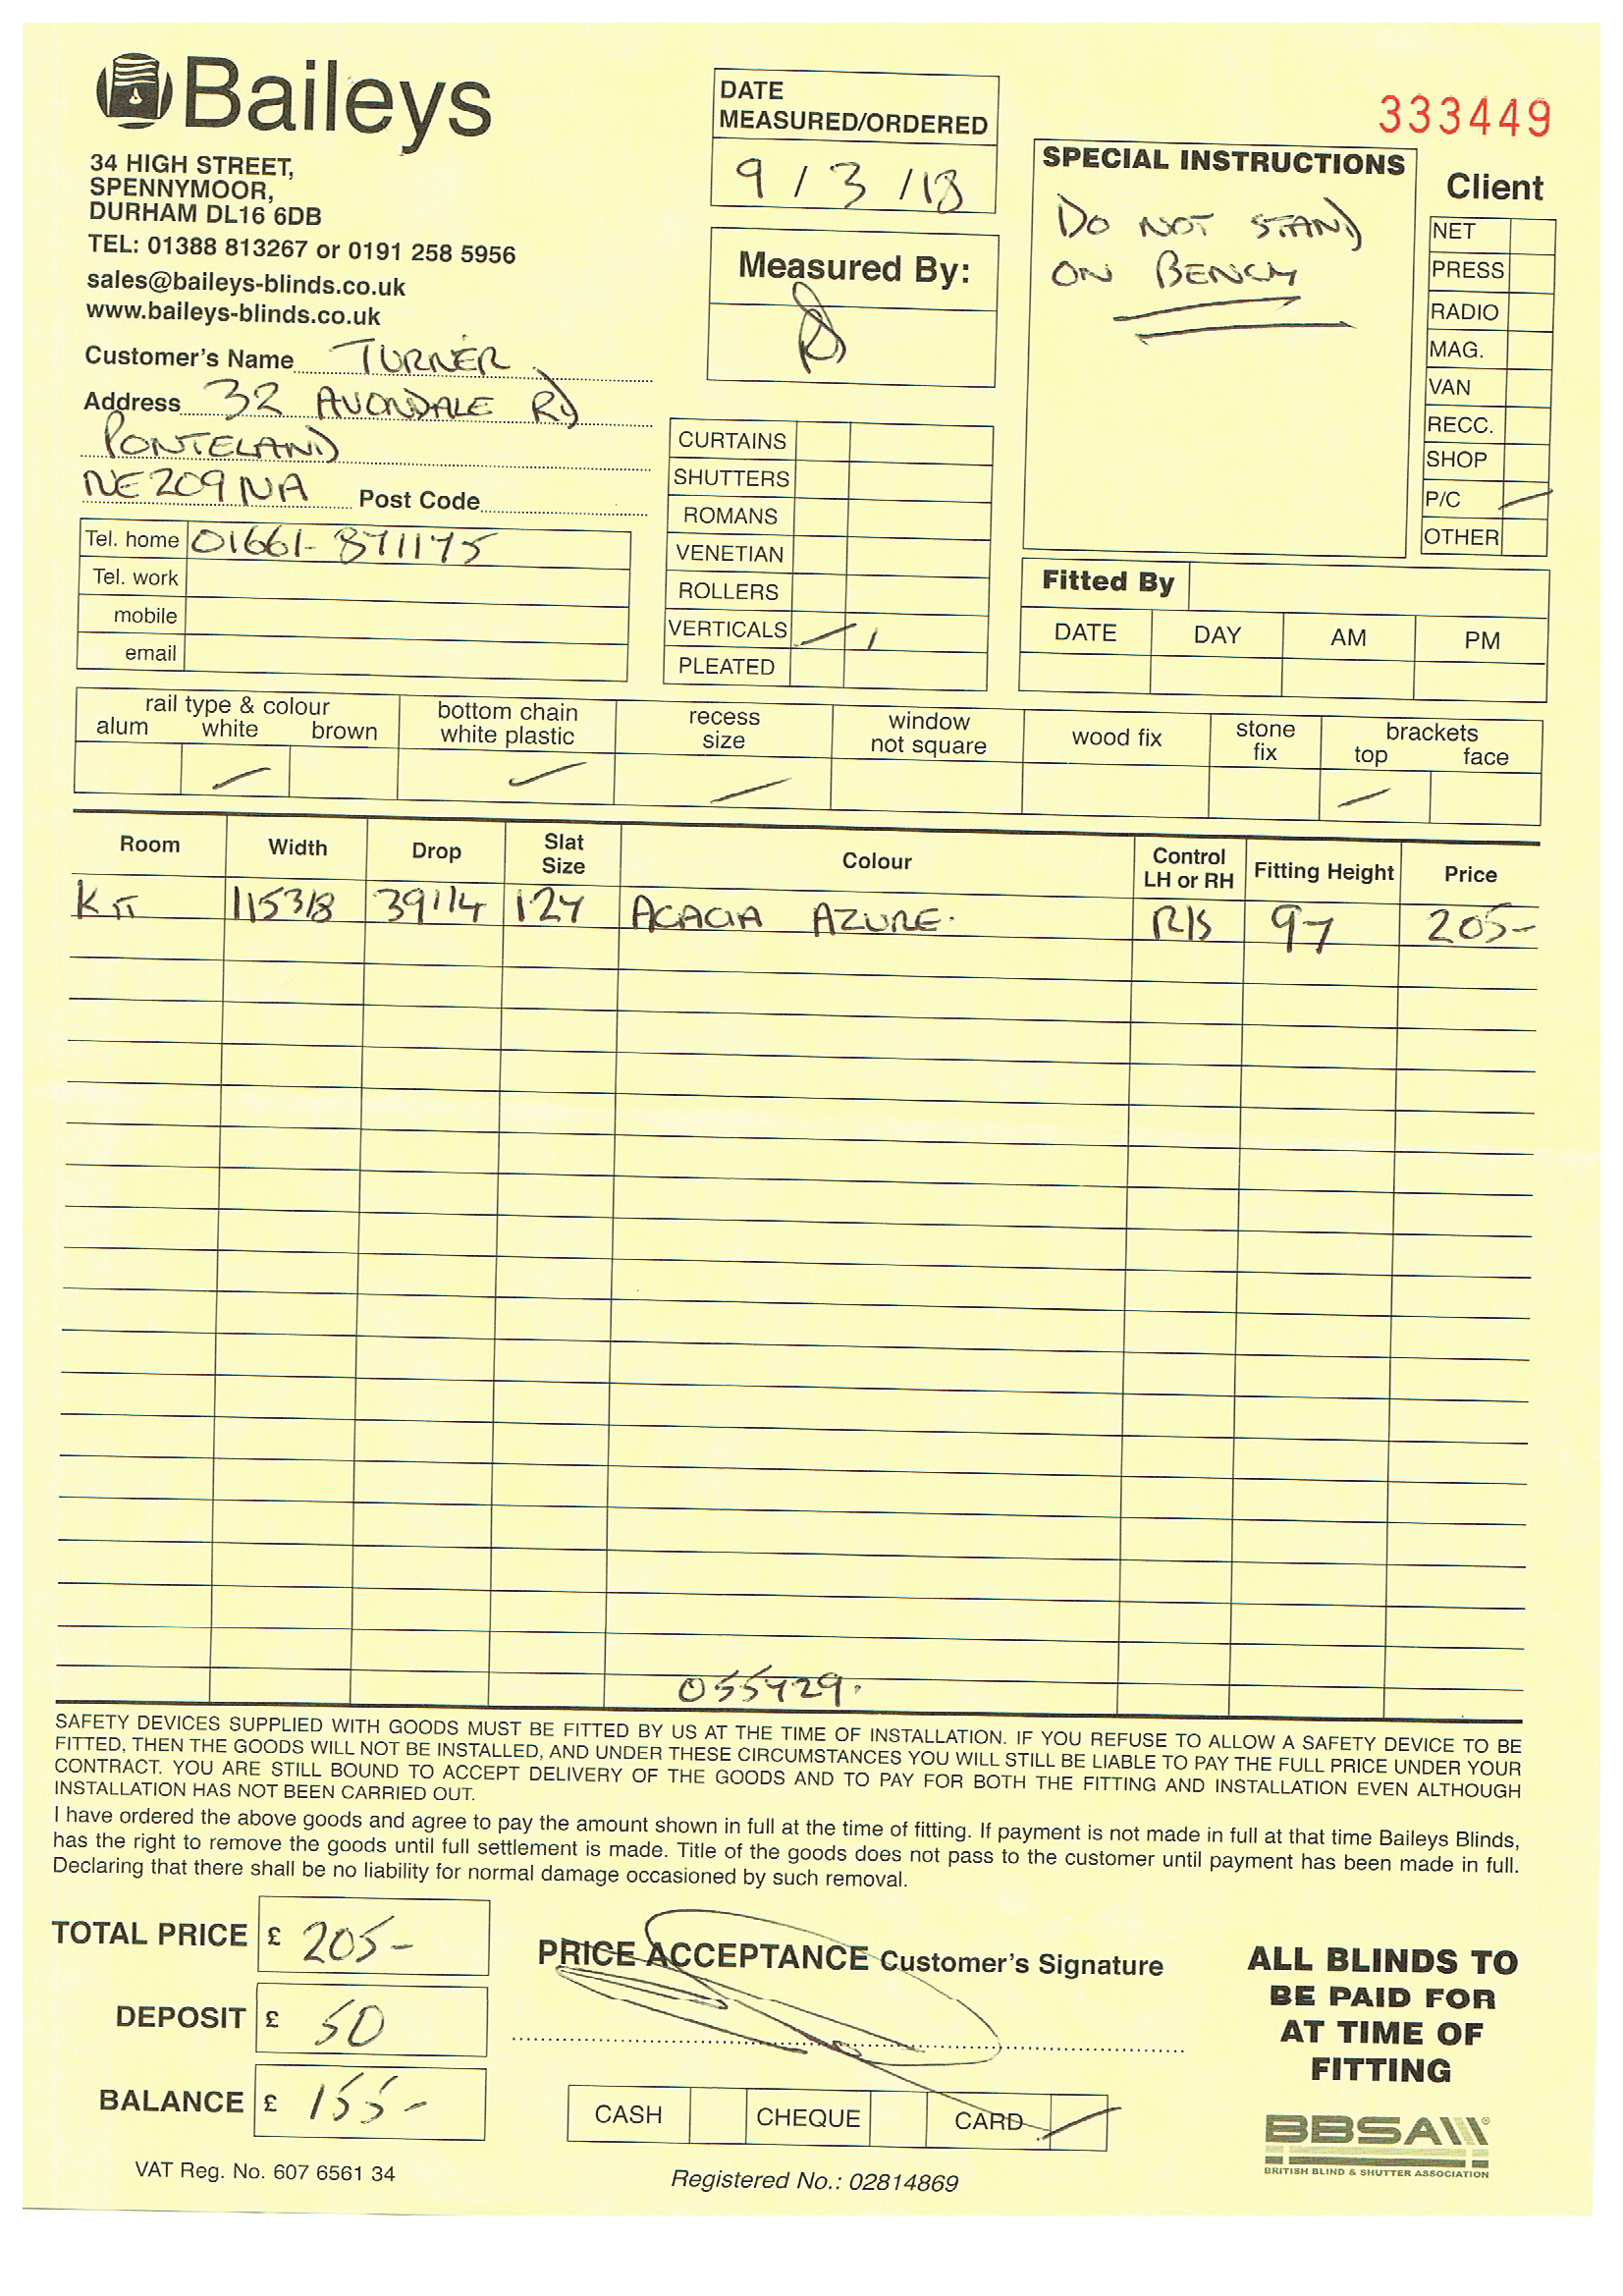 Baileys
34 HIGH STREET,
SPENNYMOOR,
DURHAM DL16 6DB
TEL: 01388 813267 or 0191 258 5956
sales@baileys-blinds.co.uk
www.baileys-blinds.co.uk
Customer's Name TURNER
Address 32 AVONDALE RD
PONTELAND
NE209NA Post Code
Tel. home 01661-871175
Tel. work
mobile
email
DATE
MEASURED/ORDERED
9/3/18
Measured By:
CURTAINS
SHUTTERS
ROMANS
VENETIAN
ROLLERS
VERTICALS 1
PLEATED
333449
SPECIAL INSTRUCTIONS
DO NOT STAND
ON BENCH
Client
NET
PRESS
RADIO
MAG.
VAN
RECC.
SHOP
P/C
OTHER
Fitted By
DATE DAY AM PM
rail type & colour bottom chain recess window wood fix stone brackets
alum white brown white plastic size not square fix top face
Room Width Drop Slat Size Colour Control LH or RH Fitting Height Price
KIT 1153/8 391/4 127 ACACIA AZURE. R/S 97 205-
055429.
SAFETY DEVICES SUPPLIED WITH GOODS MUST BE FITTED BY US AT THE TIME OF INSTALLATION. IF YOU REFUSE TO ALLOW A SAFETY DEVICE TO BE
FITTED, THEN THE GOODS WILL NOT BE INSTALLED, AND UNDER THESE CIRCUMSTANCES YOU WILL STILL BE LIABLE TO PAY THE FULL PRICE UNDER YOUR
CONTRACT. YOU ARE STILL BOUND TO ACCEPT DELIVERY OF THE GOODS AND TO PAY FOR BOTH THE FITTING AND INSTALLATION EVEN ALTHOUGH
INSTALLATION HAS NOT BEEN CARRIED OUT.
I have ordered the above goods and agree to pay the amount shown in full at the time of fitting. If payment is not made in full at that time Baileys Blinds,
has the right to remove the goods until full settlement is made. Title of the goods does not pass to the customer until payment has been made in full.
Declaring that there shall be no liability for normal damage occasioned by such removal.
TOTAL PRICE £ 205-
DEPOSIT £ 50
BALANCE £ 155-
VAT Reg. No. 607 6561 34
PRICE ACCEPTANCE Customer's Signature
CASH CHEQUE CARD
Registered No.: 02814869
ALL BLINDS TO
BE PAID FOR
AT TIME OF
FITTING
BBSA
BRITISH BLIND & SHUTTER ASSOCIATION